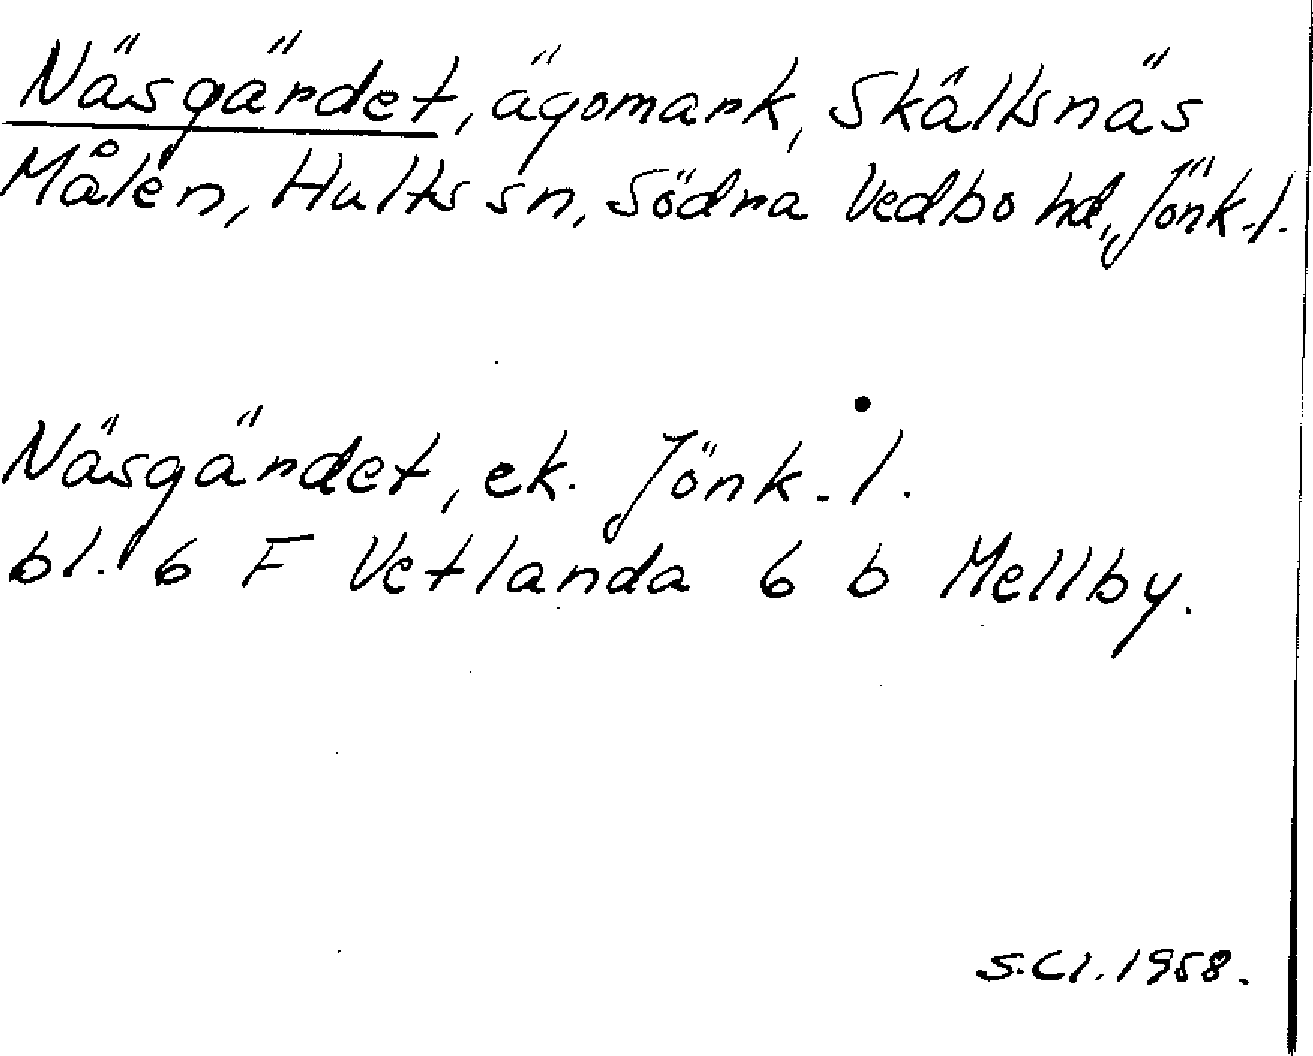 Näsgärdet, ägomark, Skältsnäs
Målen, Hults sn, Södra Vedbo hd, Jönk.l.
Näsgärdet, ek. Jönk.l.
bl. 6 F Vetlanda 6 b Mellby.
S.Cl. 1958.